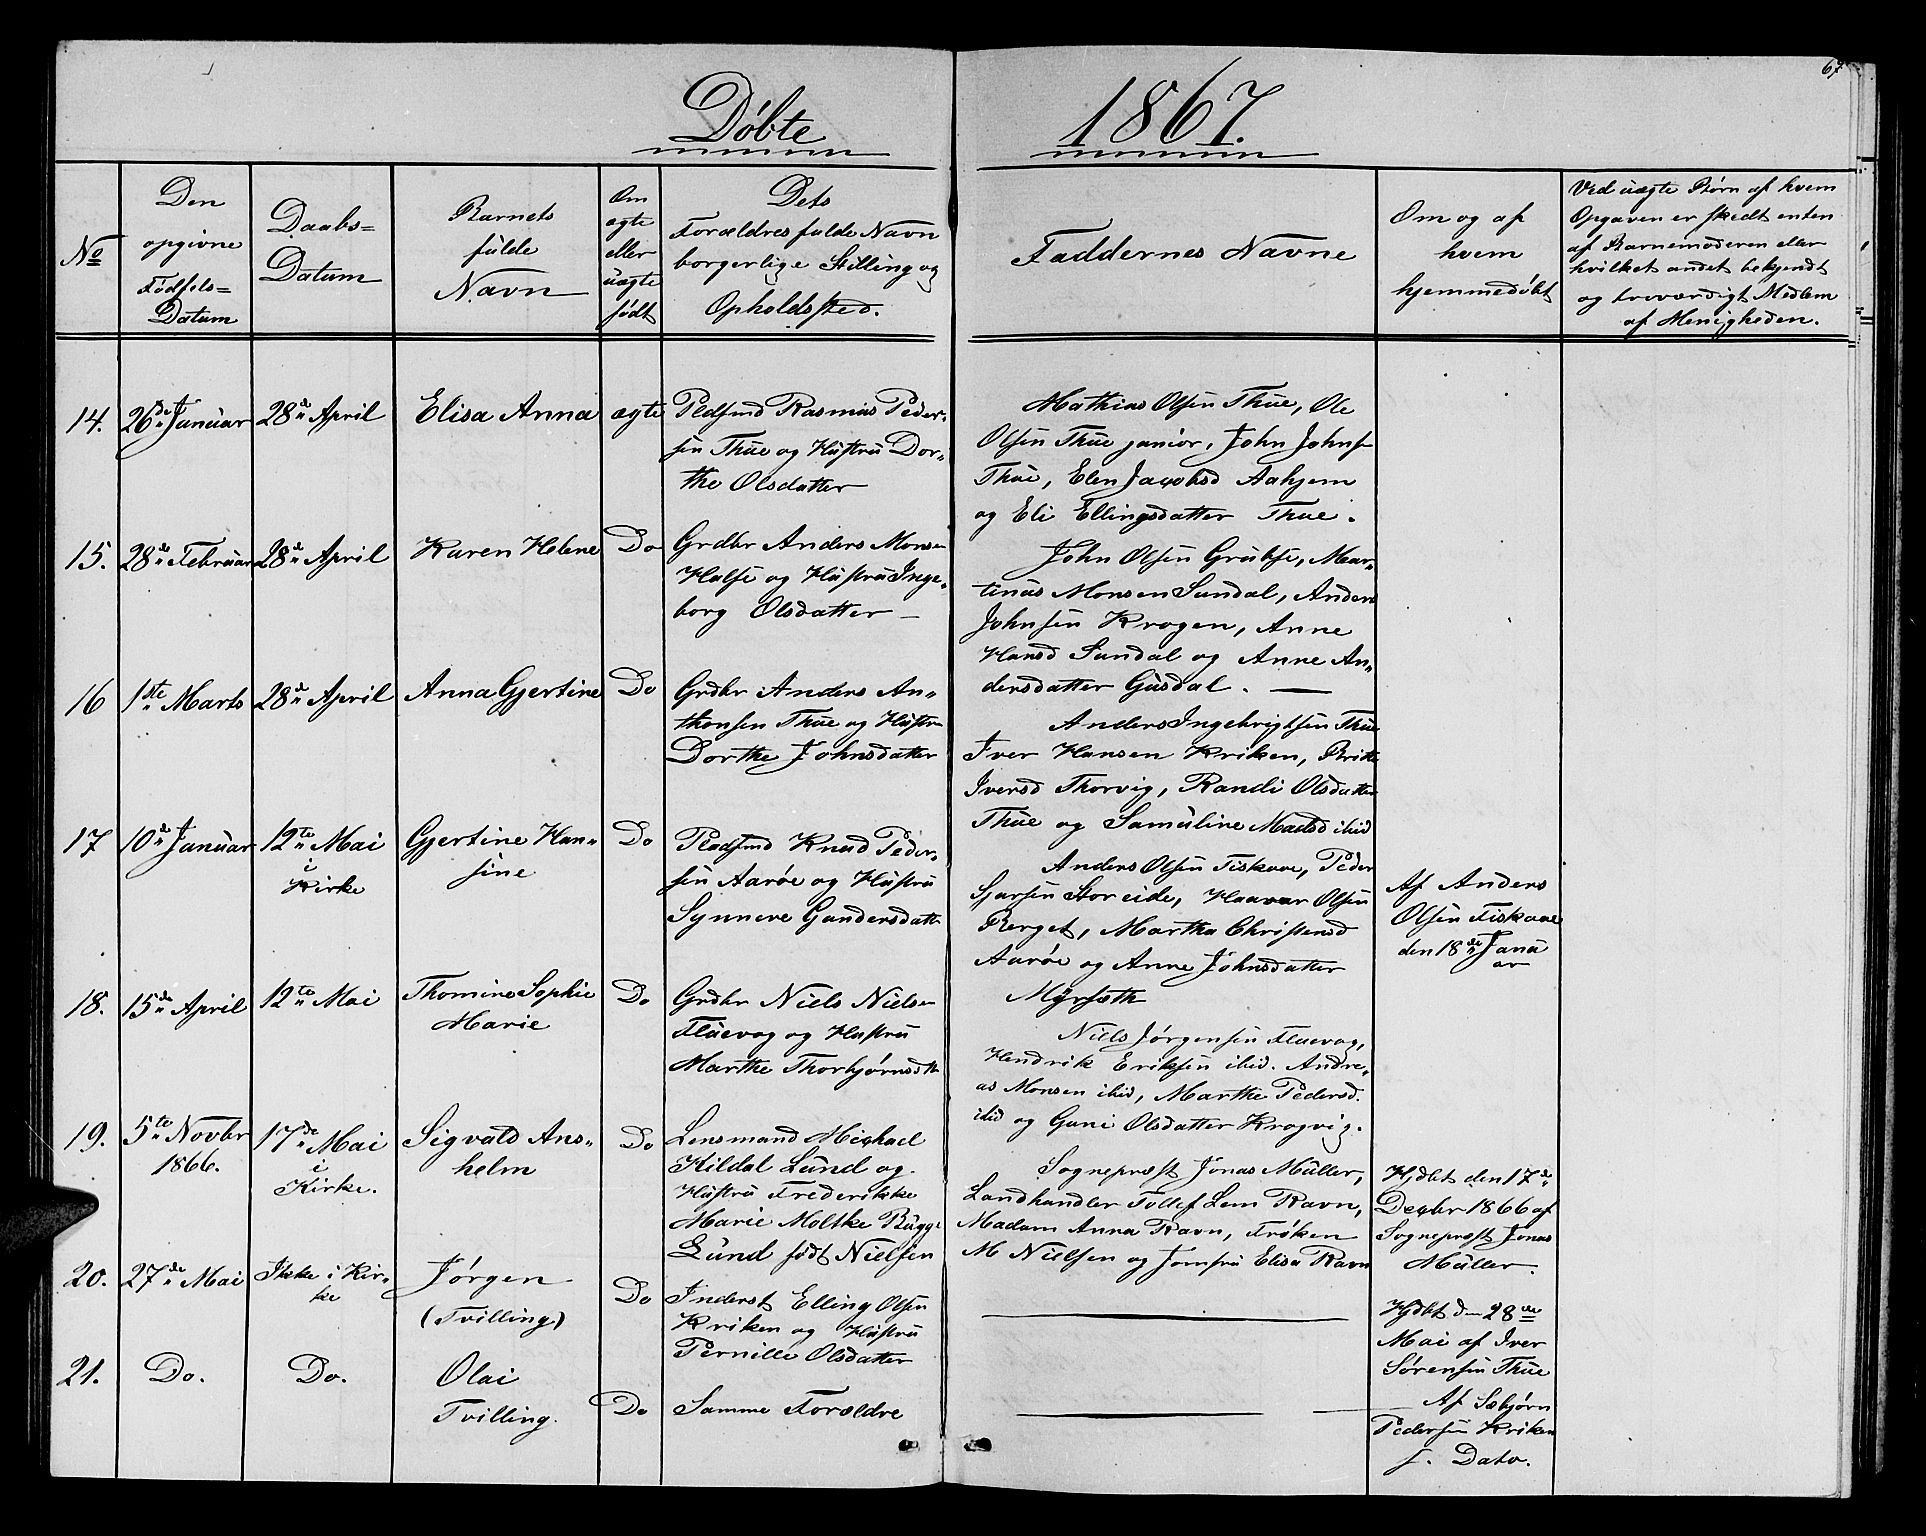 67
Döbte 1867.
No
Den
opgivne
Födsels=
Datum
Daabs=
Datum
Barnets
fulde
Navn
Om
ægte
eller
uægte
födt
Dets
Forældres fulde Navn
borgerlige Stilling og
Opholdssted.
Faddernes Navne
Om og af
hvem
hjemmedöbt
Ved uægte Börn af hvem
Opgaven er skedt enten
af Barnemoderen eller
hvilket andet bekjendt
og troværdigt Medlem
af Menigheden.
14. 26de Januar 28de April Elisa Anna ægte
Pldsmd Rasmus Peder-
sen Thue og Hustru Dor-
the Olsdatter
Mathias Olsen Thue, Ole
Olsen Thue junior, John Johns
Thue, Elen Jacobsd Aahjem
og Eli Ellingsdatter Thue.
15. 28de Februar 28de April Karen Helene Do
Grdbr Anders Monsen
Halse og Hustru Inge-
borg Olsdatter
John Olsen Grubse, Mar-
tinus Monsen Sundal, Anders
Johnsen Krogen, Anne
Hansd Sundal og Anne An-
dersdatter Gusdal.
16 1ste Marts 28de April Anna Gjertine Do
Grdbr Anders An-
thonsen Thue og Hustru
Dorthe Johnsdatter
Anders Ingebrigtsen Thue
Iver Hansen Kriken, Britte
Iversd Thorvig, Randi Olsdatter
Thue og Samuline Madsd ibid
17 10de Januar 12te Mai
i
Kirke
Gjertine Han-
sine
Do
Pladsmd Knud Peder-
sen Aaröe og Hustru
Synneve Gundersdatt
Anders Olsen Fiskaae, Peder
Sjursen Storeide, Haavar Olsen
Berget, Martha Christensd
Aaröe og Anne Johnsdatter
Myrsæth
Af Anders
Olsen Fiskaae
den 18de Janu
ar
18. 15de April 12te Mai Thomine Sophie
Marie
Do
Grdbr Niels Nielsen
Fluevog og Hustru
Marthe Thorbjörnsdtt
Niels Jörgensen Fluevog,
Hendrik Eriksen ibid. Andre-
as Monsen ibid, Marthe Pedersd.
ibid og Guni Olsdatter Krogvig.
19. 5te Novbr
1866.
17de Mai
i
Kirke.
Sigvald Ans-
helm
Do
Lensmand Michael
Kildal Lund og
Hustru Frederikke
Marie Moltke Bugge
Lund födt Nielsen
Sogneprest Jonas Müller,
Landhandler Tollef Lem Ravn,
Madam Anna Ravn, Fröken
M Nielsen og Jomfru Elisa Ravn
Hjdbt den 17de
Decbr 1866 af
Sogneprst Jonas
Müller.
20. 27de Mai Ikke i Kir-
ke
Jörgen
(Tvilling)
Do
Inderst Elling Olsen
Kriken og Hustru
Pernille Olsdatter
Hjdbt d 28de
Mai af Iver
Sörensen Thue
21. Do. Do. Olai
Tvilling.
Do
Samme Forældre
Af Sebjörn
Pedersen Kriken
s. Dato.